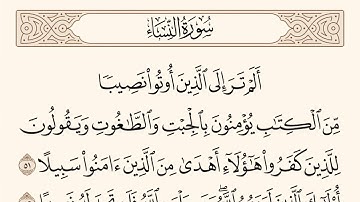 سُورَةُ النِّسَاءِ
أَلَمْ تَرَ إِلَى ٱلَّذِينَ أُوتُوا۟ نَصِيبًا
مِّنَ ٱلْكِتَٰبِ يُؤْمِنُونَ بِٱلْجِبْتِ وَٱلطَّٰغُوتِ وَيَقُولُونَ
لِلَّذِينَ كَفَرُوا۟ هَٰٓؤُلَآءِ أَهْدَىٰ مِنَ ٱلَّذِينَ ءَامَنُوا۟ سَبِيلًا ٥١